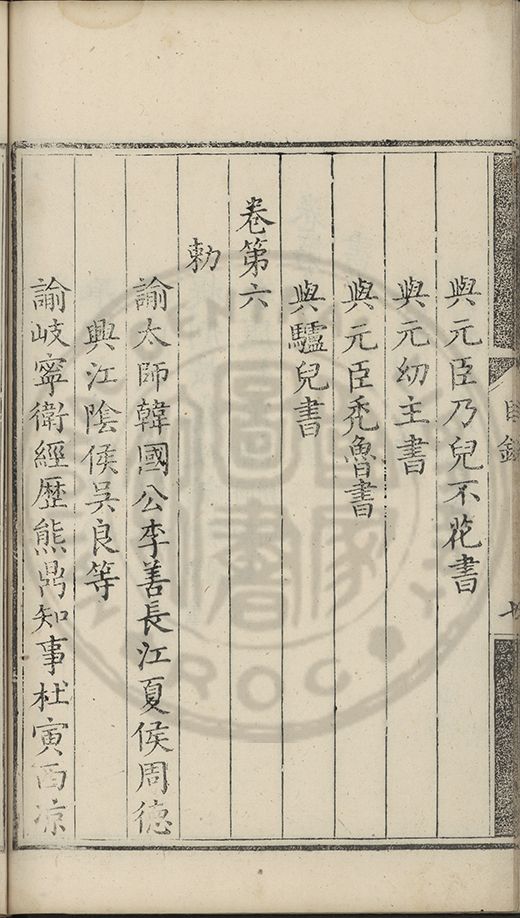 與元臣乃兒不花書
與元幼主書
與元臣禿魯書
與驢兒書
卷第六
勅
諭太師韓國公李善長江夏侯周德
興江陰侯吳良等
諭岐寧衛經歷熊鼎知事杜寅西涼